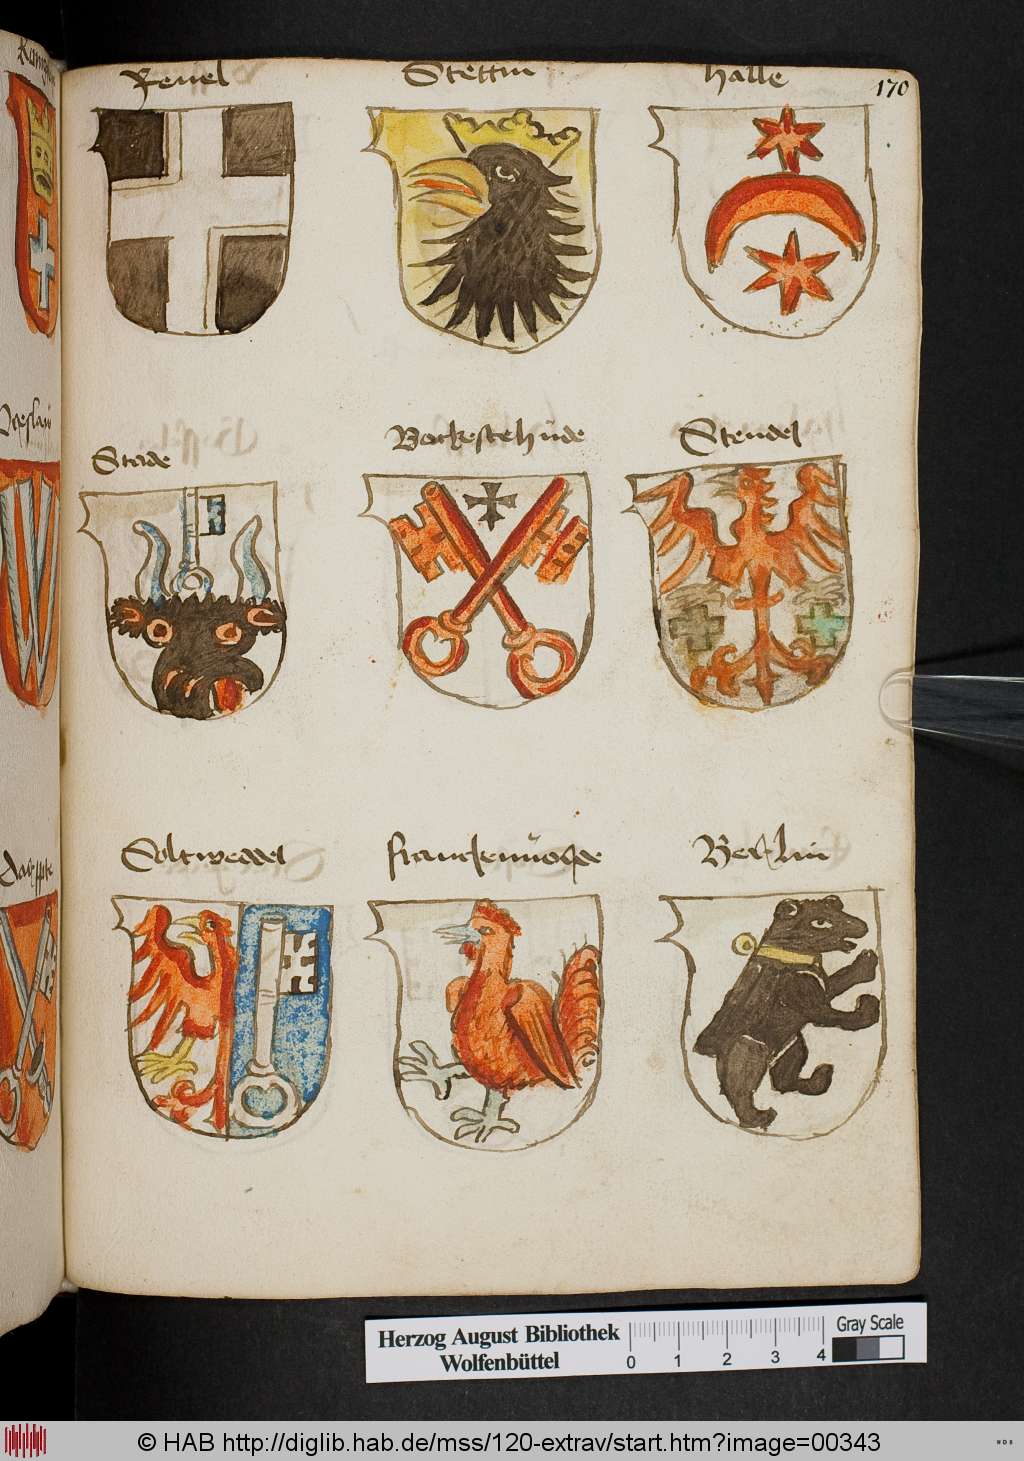 Reuel
Stettin
Halle
170
Stade
Bockestehude
Stendel
Soltweddel
Berlin
Herzog August Bibliothek
Wolfenbüttel
0 1 2 3 4
Gray Scale
© HAB http://diglib.hab.de/mss/120-extrav/start.htm?image=00343